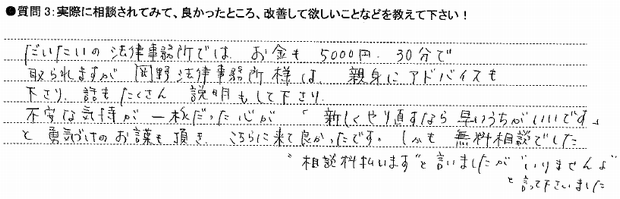 ●質問3:実際に相談されてみて、良かったところ、改善して欲しいことなどを教えて下さい！
だいたいの法律事務所では お金も 5000円. 30分で
取られますが 岡野法律事務所様は、親身にアドバイスも
下さり、話もたくさん 説明もして下さり
不安な気持が一杯だった心が 「新しくやり直すなら早いうちがいいです」
と 勇気づけのお言葉も頂き、こちらに来て良かったです。しかも 無料相談でした
"相談料払います"と言いましたが "いりませんよ"
と言って下さいました